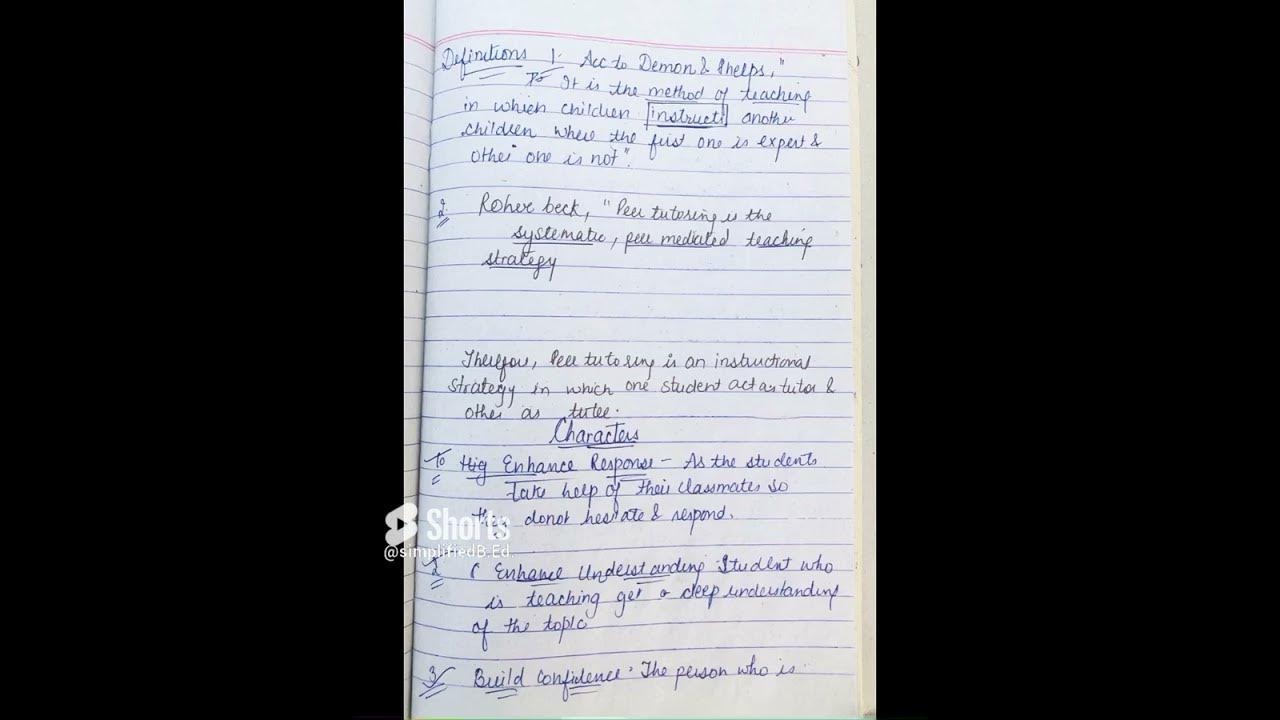 Definitions 1. Acc to Demon & Phelps, "
It is the method of teaching
in which children instructs another
children where the first one is expert &
other one is not".
2. Roher beck, "Peer tutoring is the
systematic, peer mediated teaching
strategy
Therefore, Peer tutoring is an instructional
strategy in which one student act as tutor &
other as tutee.
Characters
Enhance Response - As the students
take help of their classmates so
they donot hesitate & respond.
2. Enhance Understanding Student who
is teaching get a deep understanding
of the topic
3. Build Confidence: The person who is
Shorts
@simplifiedB.Ed.